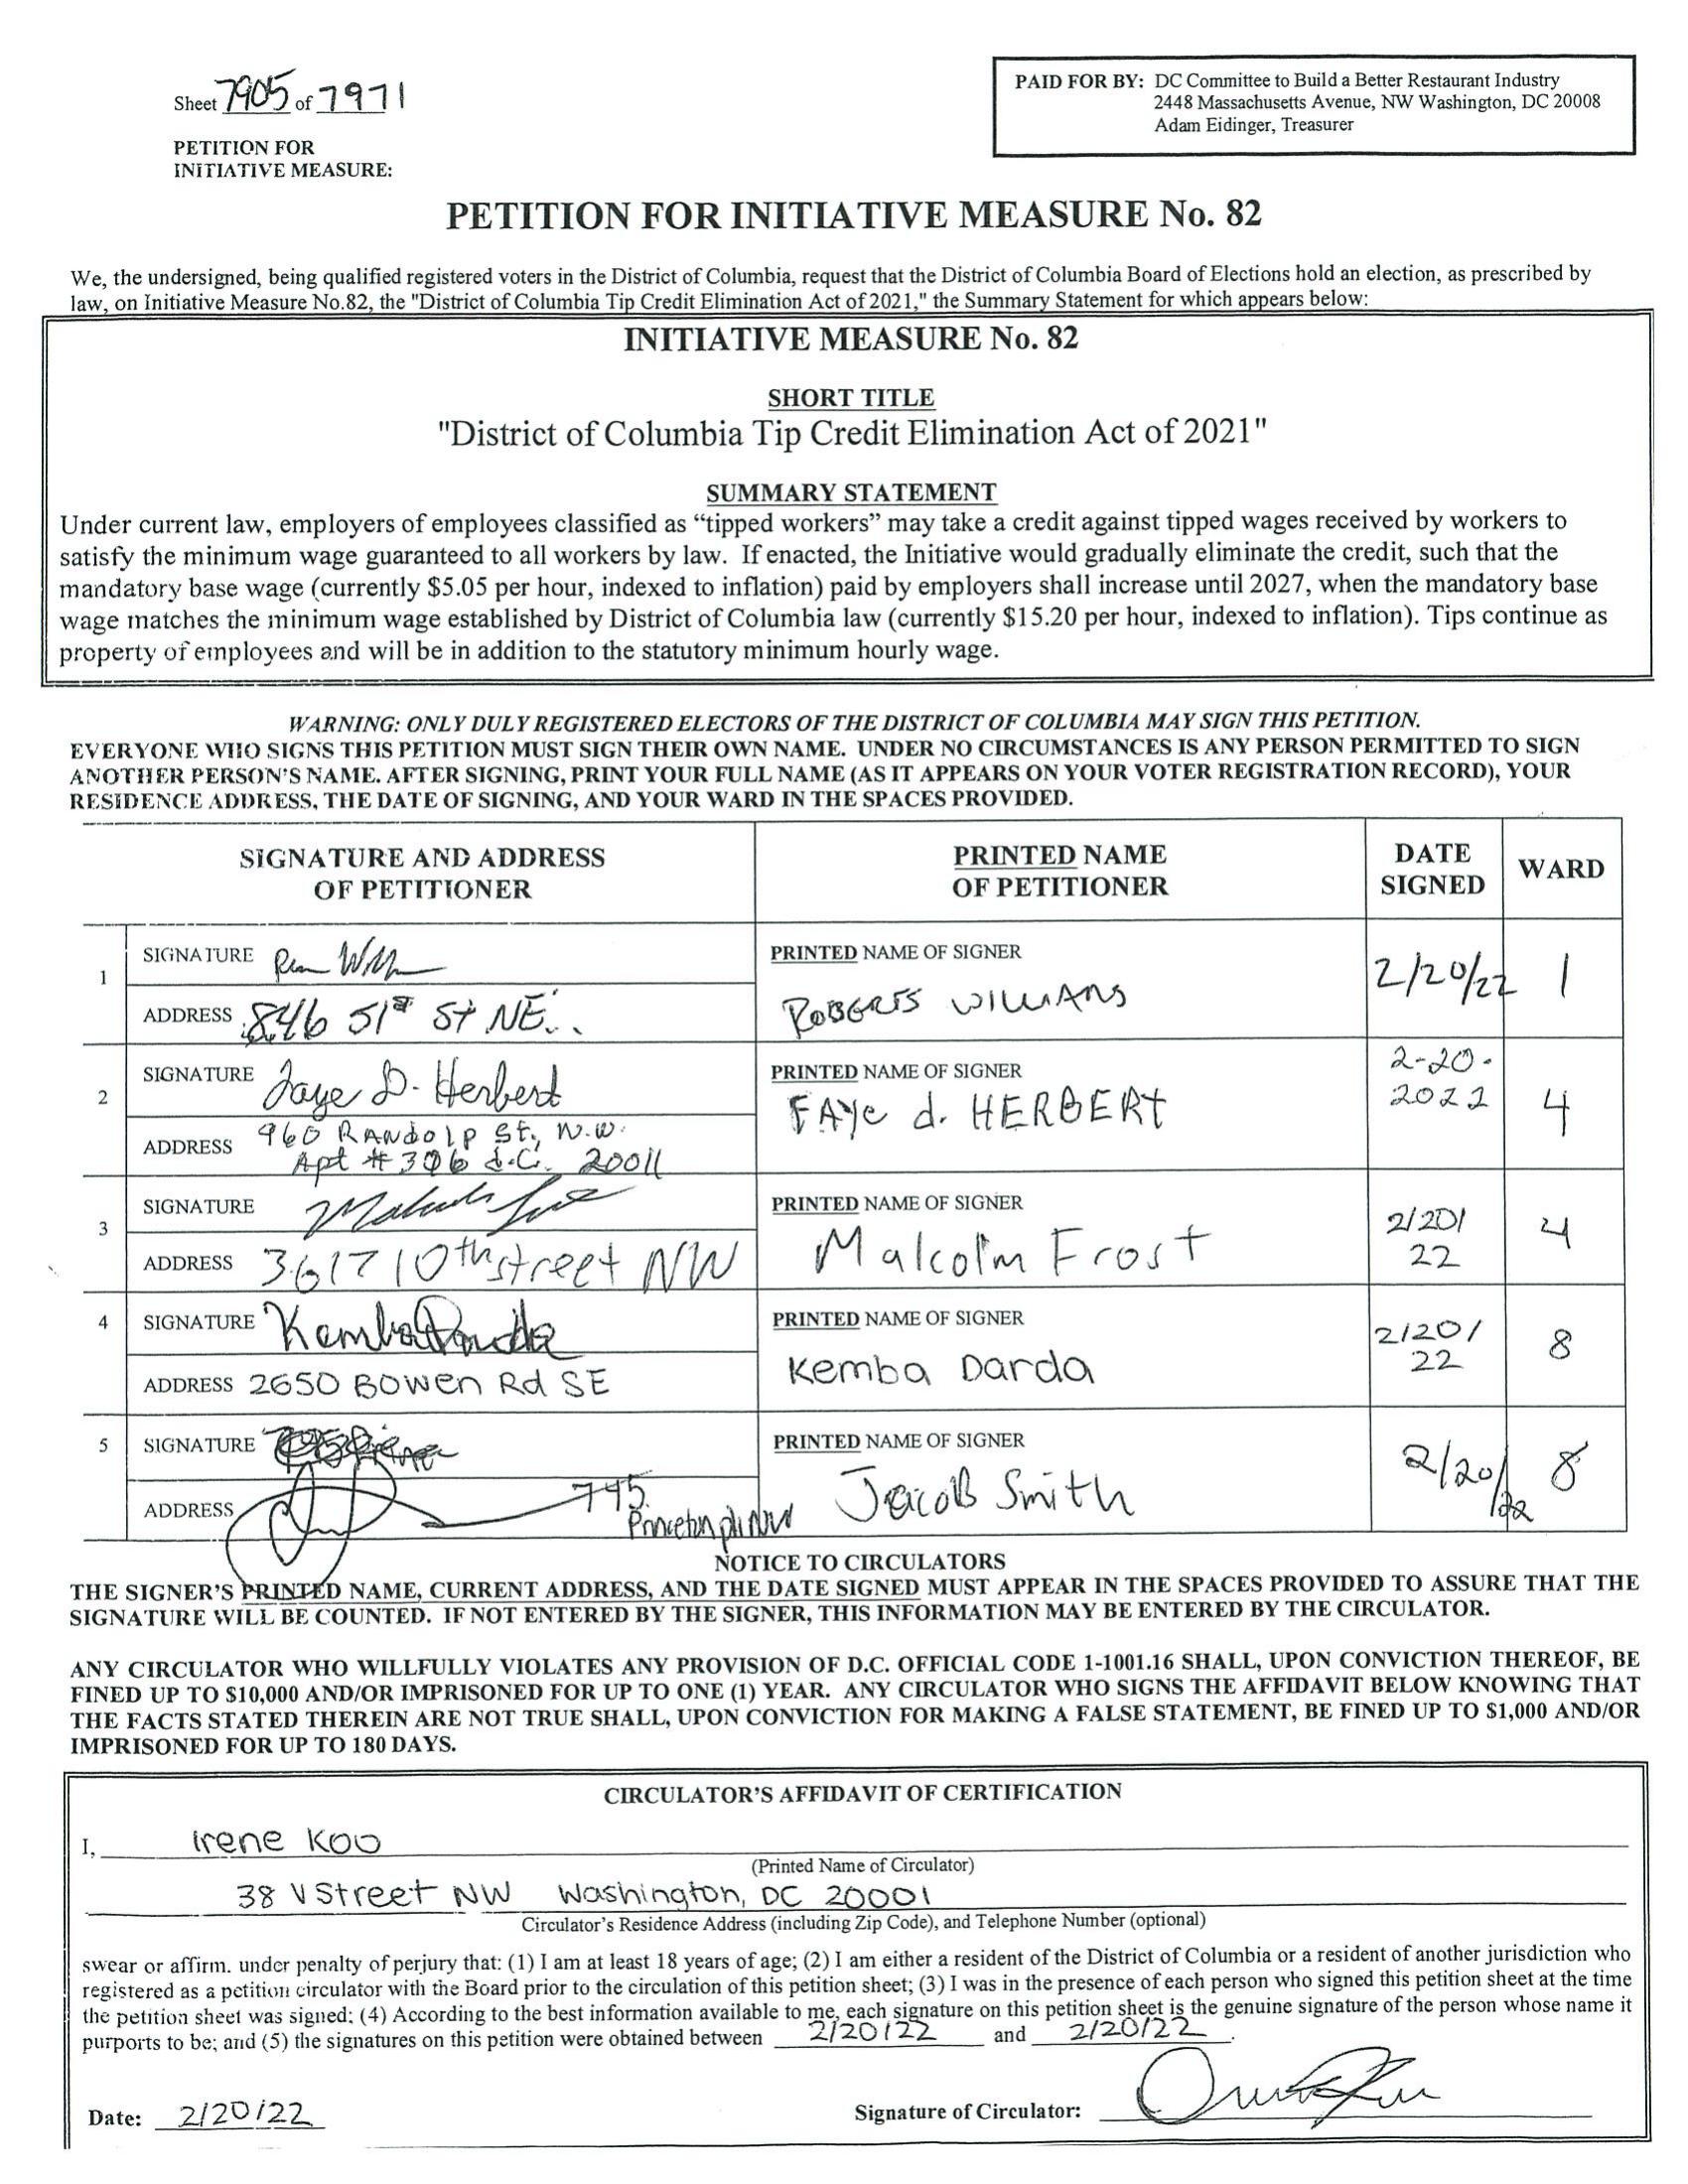 Sheet 7905 of 7971
PETITION FOR
INITIATIVE MEASURE:
PAID FOR BY: DC Committee to Build a Better Restaurant Industry
2448 Massachusetts Avenue, NW Washington, DC 20008
Adam Eidinger, Treasurer
PETITION FOR INITIATIVE MEASURE No. 82
We, the undersigned, being qualified registered voters in the District of Columbia, request that the District of Columbia Board of Elections hold an election, as prescribed by
law, on Initiative Measure No.82, the "District of Columbia Tip Credit Elimination Act of 2021," the Summary Statement for which appears below:
INITIATIVE MEASURE No. 82
SHORT TITLE
"District of Columbia Tip Credit Elimination Act of 2021"
SUMMARY STATEMENT
Under current law, employers of employees classified as “tipped workers” may take a credit against tipped wages received by workers to
satisfy the minimum wage guaranteed to all workers by law. If enacted, the Initiative would gradually eliminate the credit, such that the
mandatory base wage (currently $5.05 per hour, indexed to inflation) paid by employers shall increase until 2027, when the mandatory base
wage matches the minimum wage established by District of Columbia law (currently $15.20 per hour, indexed to inflation). Tips continue as
property of employees and will be in addition to the statutory minimum hourly wage.
WARNING: ONLY DULY REGISTERED ELECTORS OF THE DISTRICT OF COLUMBIA MAY SIGN THIS PETITION.
EVERYONE WHO SIGNS THIS PETITION MUST SIGN THEIR OWN NAME. UNDER NO CIRCUMSTANCES IS ANY PERSON PERMITTED TO SIGN
ANOTHER PERSON'S NAME. AFTER SIGNING, PRINT YOUR FULL NAME (AS IT APPEARS ON YOUR VOTER REGISTRATION RECORD), YOUR
RESIDENCE ADDRESS, THE DATE OF SIGNING, AND YOUR WARD IN THE SPACES PROVIDED.
SIGNATURE AND ADDRESS
OF PETITIONER
PRINTED NAME
OF PETITIONER
DATE
SIGNED
WARD
1
SIGNATURE
ADDRESS 846 51st St NE
PRINTED NAME OF SIGNER
ROBERTS WILLIAMS
2/20/22
1
2
SIGNATURE Faye D. Herbert
ADDRESS 960 RANdOlP St., N.W.
Apt # 306 d.C. 20011
PRINTED NAME OF SIGNER
FAYe d. HERBERt
2-20-
2022
4
3
SIGNATURE
ADDRESS 3617 10th street NW
PRINTED NAME OF SIGNER
Malcolm Frost
2/20/
22
4
4
SIGNATURE Kemba Darda
ADDRESS 2650 Bowen Rd SE
PRINTED NAME OF SIGNER
Kemba Darda
2/20/
22
8
5
SIGNATURE
ADDRESS 745
Princeton pl NW
PRINTED NAME OF SIGNER
Jacob Smith
2/20/
22
8
NOTICE TO CIRCULATORS
THE SIGNER'S PRINTED NAME, CURRENT ADDRESS, AND THE DATE SIGNED MUST APPEAR IN THE SPACES PROVIDED TO ASSURE THAT THE
SIGNATURE WILL BE COUNTED. IF NOT ENTERED BY THE SIGNER, THIS INFORMATION MAY BE ENTERED BY THE CIRCULATOR.
ANY CIRCULATOR WHO WILLFULLY VIOLATES ANY PROVISION OF D.C. OFFICIAL CODE 1-1001.16 SHALL, UPON CONVICTION THEREOF, BE
FINED UP TO $10,000 AND/OR IMPRISONED FOR UP TO ONE (1) YEAR. ANY CIRCULATOR WHO SIGNS THE AFFIDAVIT BELOW KNOWING THAT
THE FACTS STATED THEREIN ARE NOT TRUE SHALL, UPON CONVICTION FOR MAKING A FALSE STATEMENT, BE FINED UP TO $1,000 AND/OR
IMPRISONED FOR UP TO 180 DAYS.
CIRCULATOR'S AFFIDAVIT OF CERTIFICATION
I, Irene Koo
(Printed Name of Circulator)
38 V Street NW Washington, DC 20001
Circulator's Residence Address (including Zip Code), and Telephone Number (optional)
swear or affirm. under penalty of perjury that: (1) I am at least 18 years of age; (2) I am either a resident of the District of Columbia or a resident of another jurisdiction who
registered as a petition circulator with the Board prior to the circulation of this petition sheet; (3) I was in the presence of each person who signed this petition sheet at the time
the petition sheet was signed; (4) According to the best information available to me, each signature on this petition sheet is the genuine signature of the person whose name it
purports to be; and (5) the signatures on this petition were obtained between 2/20/22 and 2/20/22.
Date: 2/20/22
Signature of Circulator: